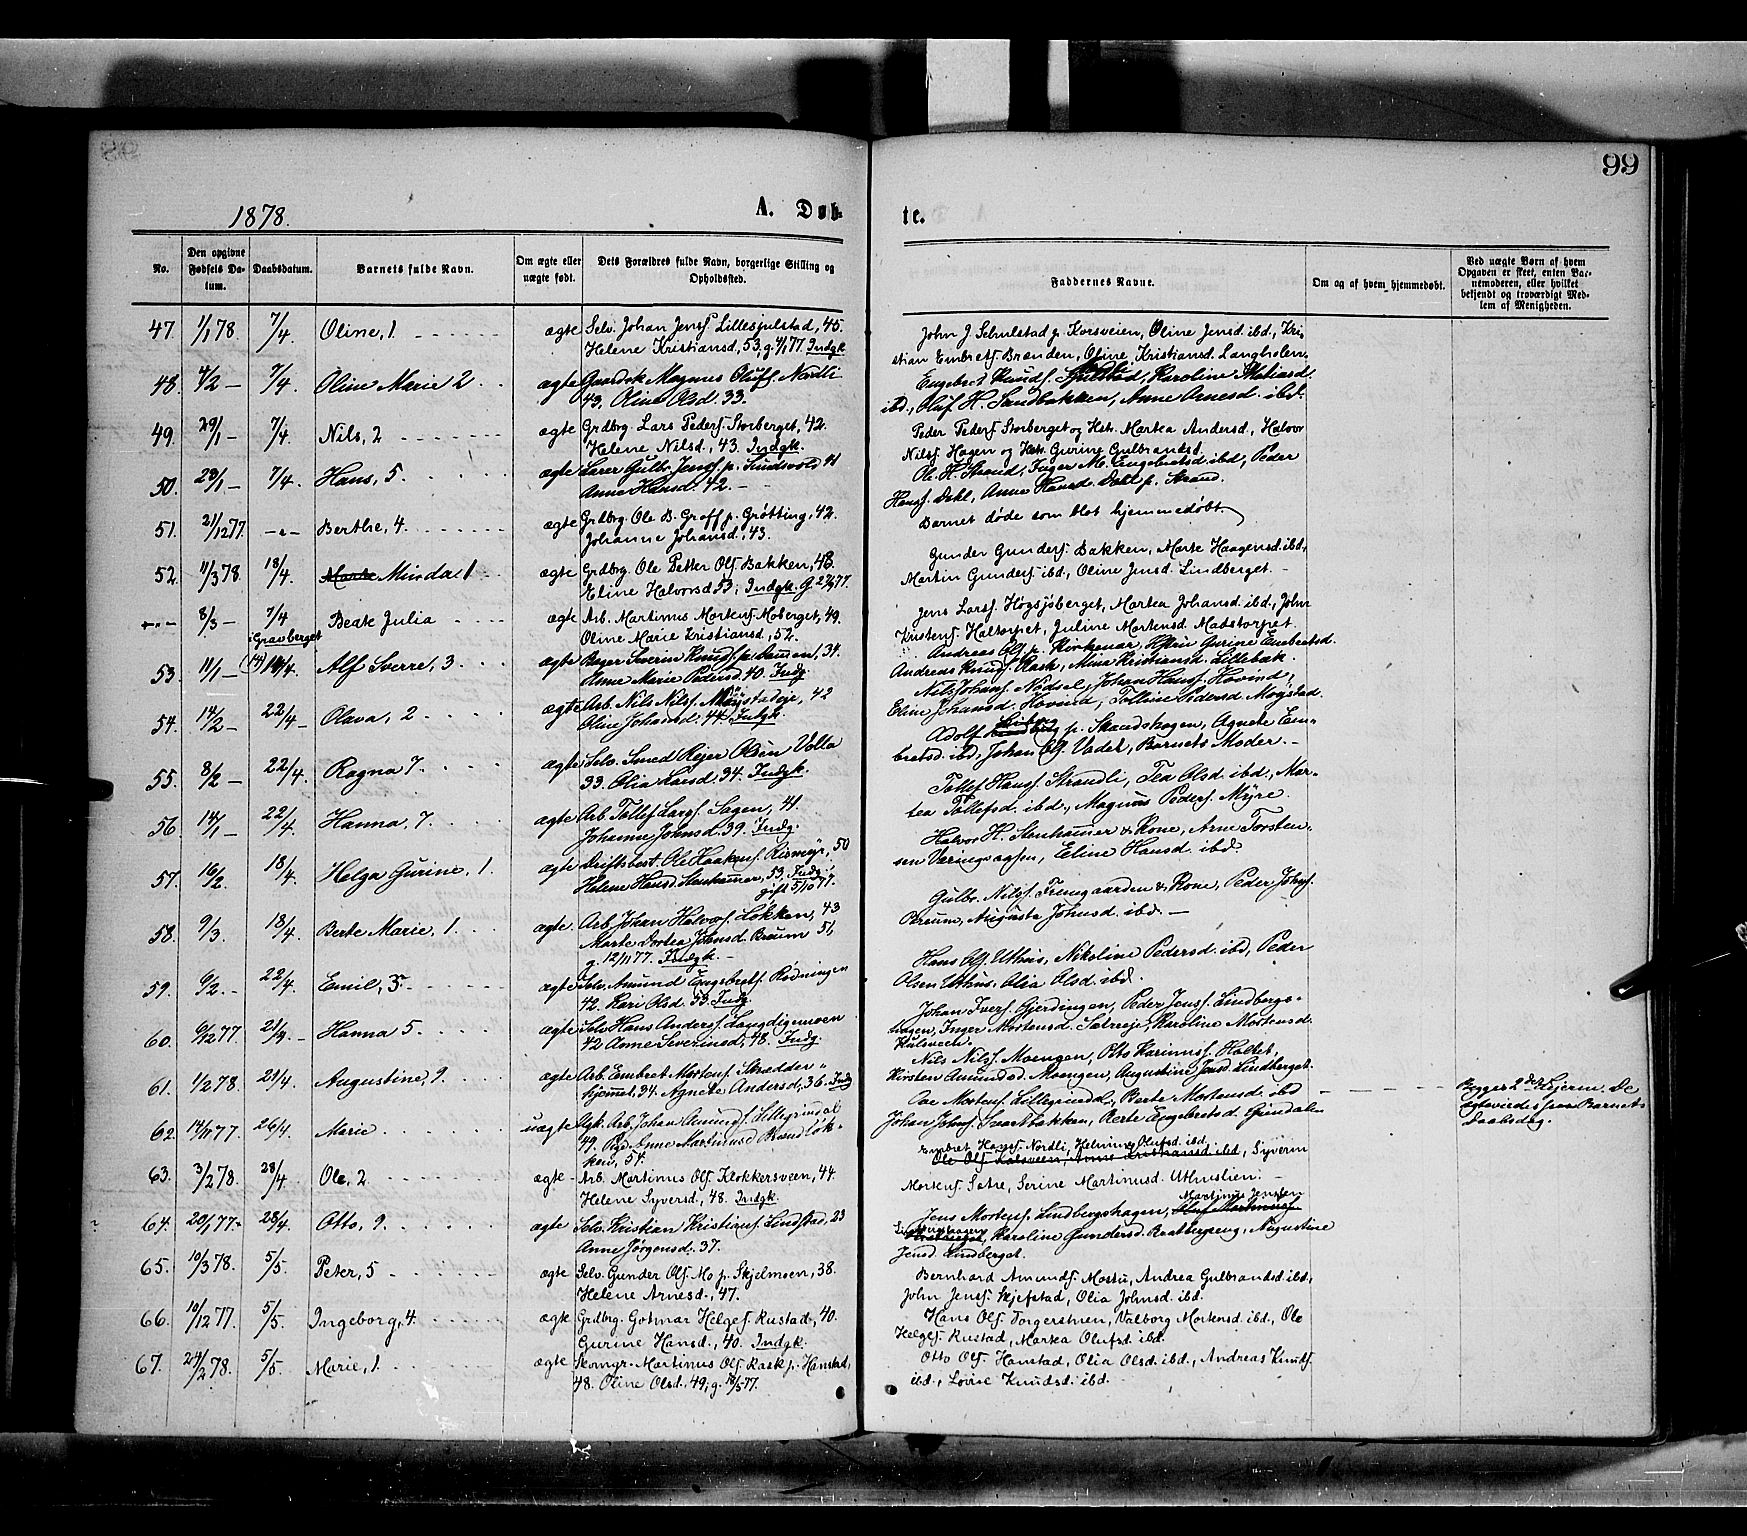 99
1878.
A. Døb-
te.
No.
Den opgivne Fødsels Da-tum.
Daabsdatum.
Barnets fulde Navn.
Om ægte eller uægte født.
Dets Forældres fulde Navn, borgerlige Stilling og Opholdssted.
Faddernes Navne.
Om og af hvem hjemmedøbt.
Ved uægte Børn af hvem Opgaven er skeet, enten Bar-nemoderen, eller hvilket bekjendt og troværdigt Med-lem af Menigheden.
47. 1/1 78 7/4 Oline, 1 ægte Selv. Johan Jenss. Lillesjulstad, 45.
Helene Kristiansd., 53, g. 4/1 77. Indgk.
John J. p. Korsveien, Oline Jensd. ibd., Kri-
stian Embrets. Branden, Oline Kristiansd. Langholen.
48. 4/2 — 7/4 Oline Marie 2 ægte Magnus Olufs. Nordli
43. Oline Olsd. 33.
Engebret Knuds. Sjulstad, Karoline
ibd., Oluf H. Sandbakken, Anne Arnesd. ibd.
49. 29/1 — 7/4. Nils, 2 ægte Grdbrg. Lars Peders. Storberget, 42.
Helene Nilsd., 43. Indgk.
Peder Peders. Storberget og Hstr. Martea Andersd., Halvor
Nilss. Hagen og Hstr. Gurine Gulbrandsd.
50. 23/1 — 7/4. Hans, 5 ægte Lærer Gulbr. Jenss. p. Sundvold 41
Anne Hansd. 42. —
Ole H. Strand, Inger M. Engebretsd. ibd., Peder
Hanss. Dahl, Anne Hansd. Dahl p. Strand.
51. 21/12 77. — " — Berthe, 4. ægte Grdbrg. Ole B. Groff p. Grøtting, 42.
Johanne Johansd., 43.
Barnet døde som blot hjemmedøbt.
52. 11/3 78. 18/4. Marte Minda 1 ægte Grdbrg. Ole Petter Ols. Bakken, 48.
Eline Halvorsd. 53; Indgk. G. 77.
Gunder Gunders. Bakken, Marte Haagensd. ibd.,
Martin Gunders. ibd., Oline Jensd. Lindberget. —
8/3 — 7/4 i Gravberget Beate Julia ægte Arb. Martinus Mortens. Moberget, 49.
Oline Marie Kristiansd., 52.
Jens Larss. Høgsjøberget, Martea Johansd. ibd., John
Kristens. Haltorpet, Juline Mortensd. Madstorpet.
53. 11/1 — Alf Sverre, 3 ægte Bager Severin Knuds. p. 34.
Anne Marie Pedersd. 40. Indg.
Andreas Ols. p. Kirkenær, Gurine Embretsd.
Andreas Knuds. Rask, Mina Kristiansd. Lillebæk.
54. 14/2 — 22/4 — Olava, 2 ægte Arb. Nils Nilss. Møystadeje, 42
Oline Johansd. 44. Indgk.
Nils Johans. Nødsel, Johan Hanss. Hovind,
Eline Johansd. Hovind, Polline Pedersd. Moystad.
55. 8/2 — 22/4. Ragna 7. ægte Selv. Smed Rejer Olsen Volla
33. Olia Larsd. 34. Indgk.
Adolf p. Skaudshagen, Agnete Em-
bretsd. ibd., Johan Ols. Vadet, Barnets Moder. —
56. 14/1 — 22/4. Hanna, 7. ægte Arb. Tollef Larss. Sagen, 41.
Johanne Johnsd. 39. Indg.
Tollef Hanss. Strandli, Tea Olsd. ibd., Mar-
tea Tollefsd. ibd., Magnus Peders. Myre.
57. 16/2. 18/4. Helga Gurine, 1. ægte Driftsbest. Ole Haakens. Rismyr, 50
Helene Hansd. Stenhammer, 53. Indg.
gift 5/10 77.
Halvor H. Stenhammer & Kone, Arne Torsten-
sen Væringsaasen, Eline Hansd. ibd.
58. 9/3. 18/4. Berte Marie, 1. ægte. Arb. Johan Halvors. Løkken, 43
Marte Dortea Johnsd. Braum 51,
g. 12/11 77. Indgk. —
Gulbr. Nilss. Framgaarden & Kone, Peder Johss.
Braum, Augusta Johnsd. ibd. —
59. 9/2. — 22/4. Emil, 3. ægte Selv. Amund Engebrets. Rødningen
42. Kari Olsd. 53. Indg.
Hans Ols. Uthus, Nikoline Pedersd. ibd., Peder
Olsen Uthus, Olia Olsd. ibd.
60. 9/12 77. Hanna 5. ægte Selv. Hans Anderss. Langdigemoen
42 Anne Severinsd., 48. Indg.
Johan Ivers. Gjerdingen, Peder Jenss. Lindbergs-
hagen, Inger Mortensd. Sætreeje, Karoline Mortensd.
Kulsveen.
61. 1/2 78. 21/4. Augustine, 9. ægte Arb. Embret Mortens. Skrædder-
hjemmet, 34. Agnete Andersd., 36. Indg.
Nils Nilss. Moengen, Otto Karinuss. Holtet,
Kirsten Amundsd. Moengen, Augustine Jensd. Lindberget.
62. 14/11 77. 26/4. Marie uægte Ugk. Arb. Johan Amunds. Lillegrindal
49. Pige Anne Martinusd. Brandløk-
ken, 54.
Ove Mortens. Lillegrindal, Berte Mortensd. ibd.
Johan Johns. Svartbakken, Berte Engebretsd. Grindalen.
Begges 2det Lejerm. De
ægteviedes paa Barnets
Daabsdag.
63. 3/2 78. 28/4. Ole, 2 ægte — Arb. Martinus Ols. Klokkersveen, 44.
Helene Syversd., 48. Indgk.
Embret Hanss. Nordli, Helmine Olufsd. ibd.
Ole Ols. Kulsveen, Anne Kristiansd. ibd., Syverin
Mortens. Sætre, Serine Martinusd. Uthuslien. —
64. 20/1 77. 28/4. Otto, 9. ægte Selv. Kristian Kristians. Lindstad, 23
Anne Jørgensd., 37.
Jens Mortens. Lindbergshagen, Martinus Jensen
Karoline Gundersd. Brattespeng, Augustine
Jensd. Lindberget.
65. 10/3 78. 5/5. Peter, 5 ægte Selv. Gunder Ols. Mo p. Skjelmoen, 38.
Helene Arnesd., 47.
Bernhard Amunds. Mostu, Andrea Gulbrandsd. ibd.,
John Jenss. Skjefstad, Olia Johnsd. ibd.
66. 10/12 77. 5/5. Ingeborg, 4. ægte Grdbrg. Gotmar Helges. Rustad, 40.
Gurine Hansd., 40. Indgk.
Hans Ols. Torgerstuen, Valborg Mortensd. ibd., Ole
Helges. Rustad, Martea Olufsd. ibd.
67. 24/2 78. 5/5. Marie, 1. ægte Skomgr. Martinus Ols. Rask p. Hanstad,
48. Oline Olsd. 49, g. 18/5 77.
Otto Ols. Hanstad, Olia Olsd. ibd., Andreas Knuds.
ibd., Lovise Knudsd. ibd.